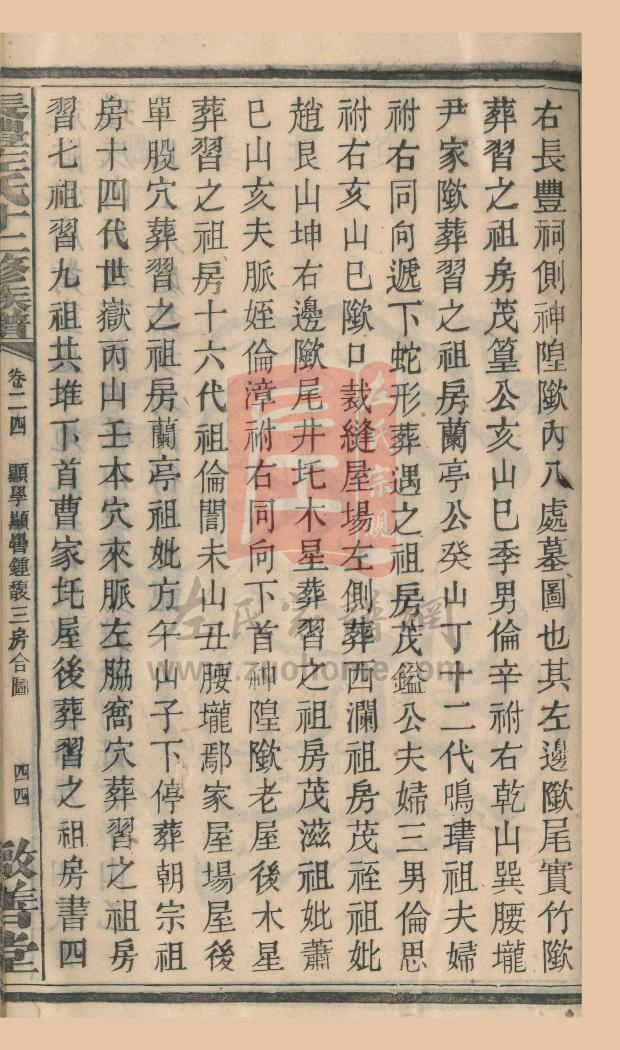 右長豐祠側神隍歘內八處墓圖也其左邊歘尾實竹歘
葬習之祖房茂篁公亥山巳季男倫辛祔右乾山巽腰壠
尹家歘葬習之祖房蘭亭公癸山丁十二代鳴琽祖夫婦
祔右同向遞下蛇形葬遇之祖房茂鑑公夫婦三男倫思
祔右亥山巳歘口裁縫屋場左側葬西瀾祖房茂祬祖妣
趙艮山坤右邊歘尾井圫木星葬習之祖房茂滋祖妣蕭
巳山亥夫脈姪倫漳祔右同向下首神隍歘老屋後木星
葬習之祖房十六代祖倫誾未山丑腰壠鄢家屋場屋後
單股穴葬習之祖房蘭亭祖妣方午山子下停葬朝宗祖
房十四代世嶽丙山壬本穴來脈左脇窩穴葬習之祖房
習七祖習九祖共堆下首曹家圫屋後葬習之祖房書四
長豐左氏十二修族譜
卷二四 顯學顯譽鍾馥三房合圖
四四
敬善堂
左氏宗親
左氏宗譜網
www.zuohome.com